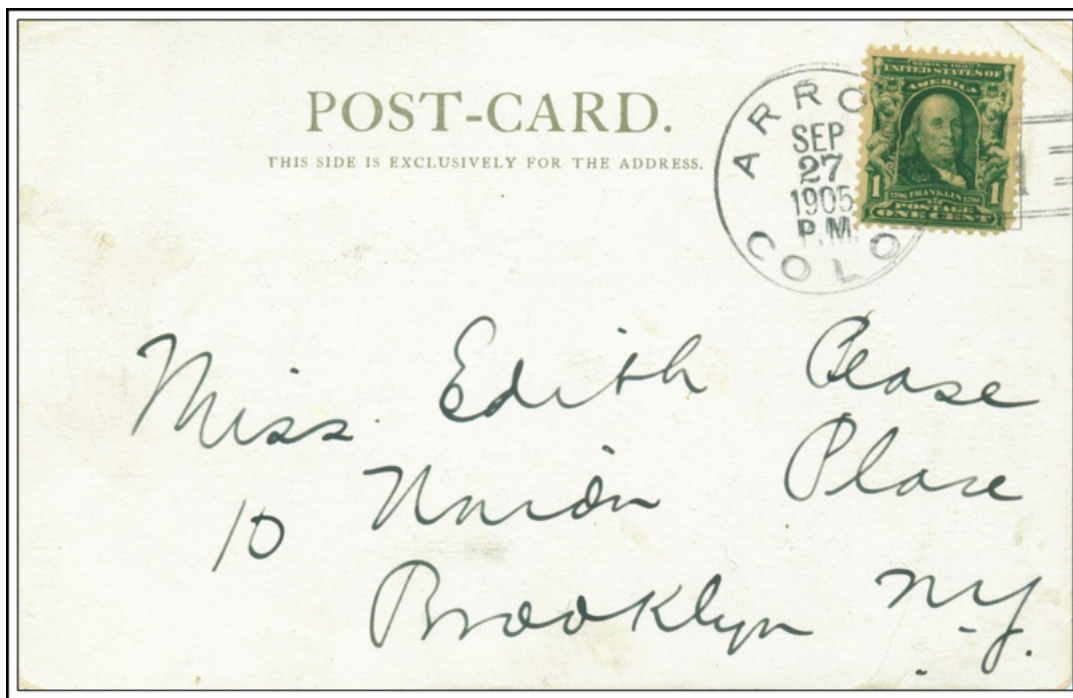 POST-CARD.
THIS SIDE IS EXCLUSIVELY FOR THE ADDRESS.
ARRO
SEP
27
1905
P.M.
COLO
SERIES 1902
UNITED STATES OF
AMERICA
1 FRANKLIN 1
POSTAGE
ONE CENT
Miss. Edith Pease
10 Union Place
Brooklyn N.Y.